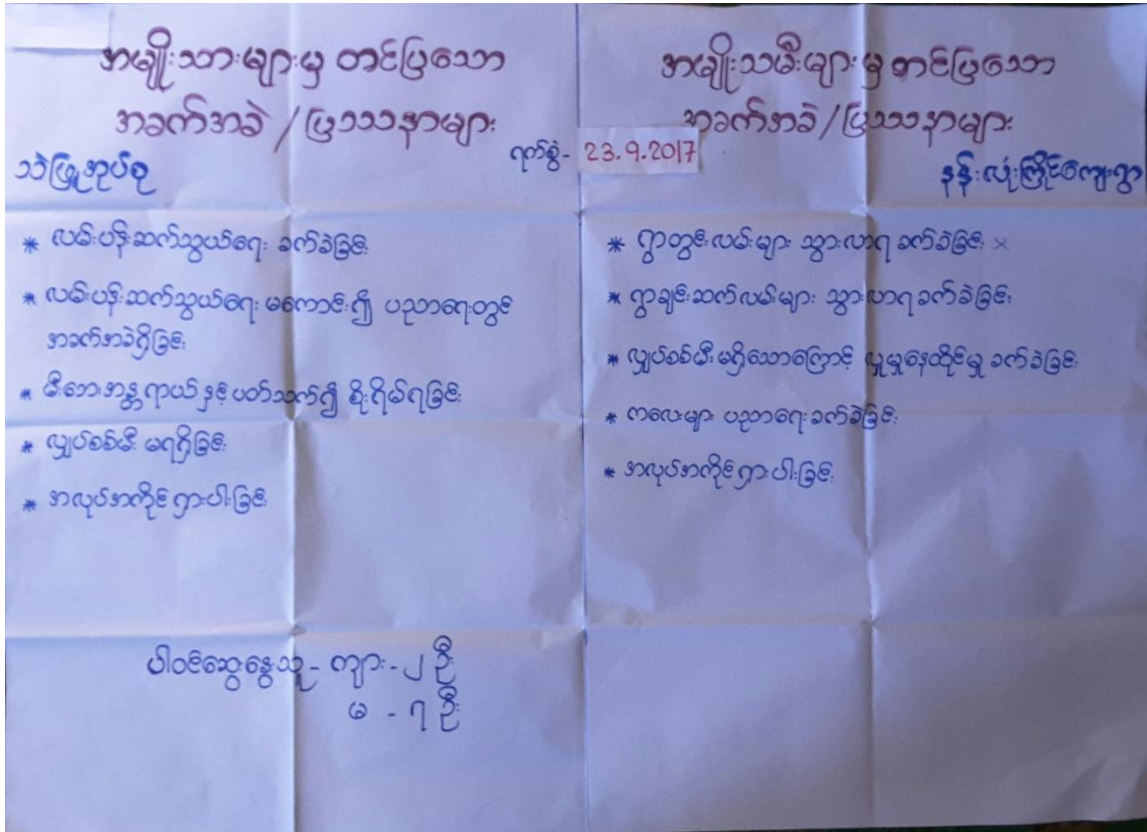 အမျိုးသားများမှ တင်ပြသော
အခက်အခဲ / ပြဿနာများ
သဲဖြူအုပ်စု
* လမ်းပန်းဆက်သွယ်ရေး ခက်ခဲခြင်း
* လမ်းပန်းဆက်သွယ်ရေး မကောင်း၍ ပညာရေးတွင်
အခက်အခဲရှိခြင်း
* မီးဘေးအန္တရာယ် နှင့်ပတ်သက်၍ စိုးရိမ်ရခြင်း
* လျှပ်စစ်မီး မရရှိခြင်း
* အလုပ်အကိုင်ရှားပါးခြင်း
ပါဝင်ဆွေးနွေးသူ - ကျား - ၂ ဦး
မ - ၇ ဦး
အမျိုးသမီးများမှ တင်ပြသော
အခက်အခဲ / ပြဿနာများ
ရက်စွဲ - 23.9.2017
နန်းလုံးကြိုင်ကျေးရွာ
* ရွာတွင်းလမ်းများ သွားလာရ ခက်ခဲခြင်း ×
* ရွာချင်းဆက်လမ်းများ သွားလာရခက်ခဲခြင်း
* လျှပ်စစ်မီးမရှိသောကြောင့် လူမှုနေထိုင်မှု ခက်ခဲခြင်း
* ကလေးများ ပညာရေးခက်ခဲခြင်း
* အလုပ်အကိုင်ရှားပါးခြင်း